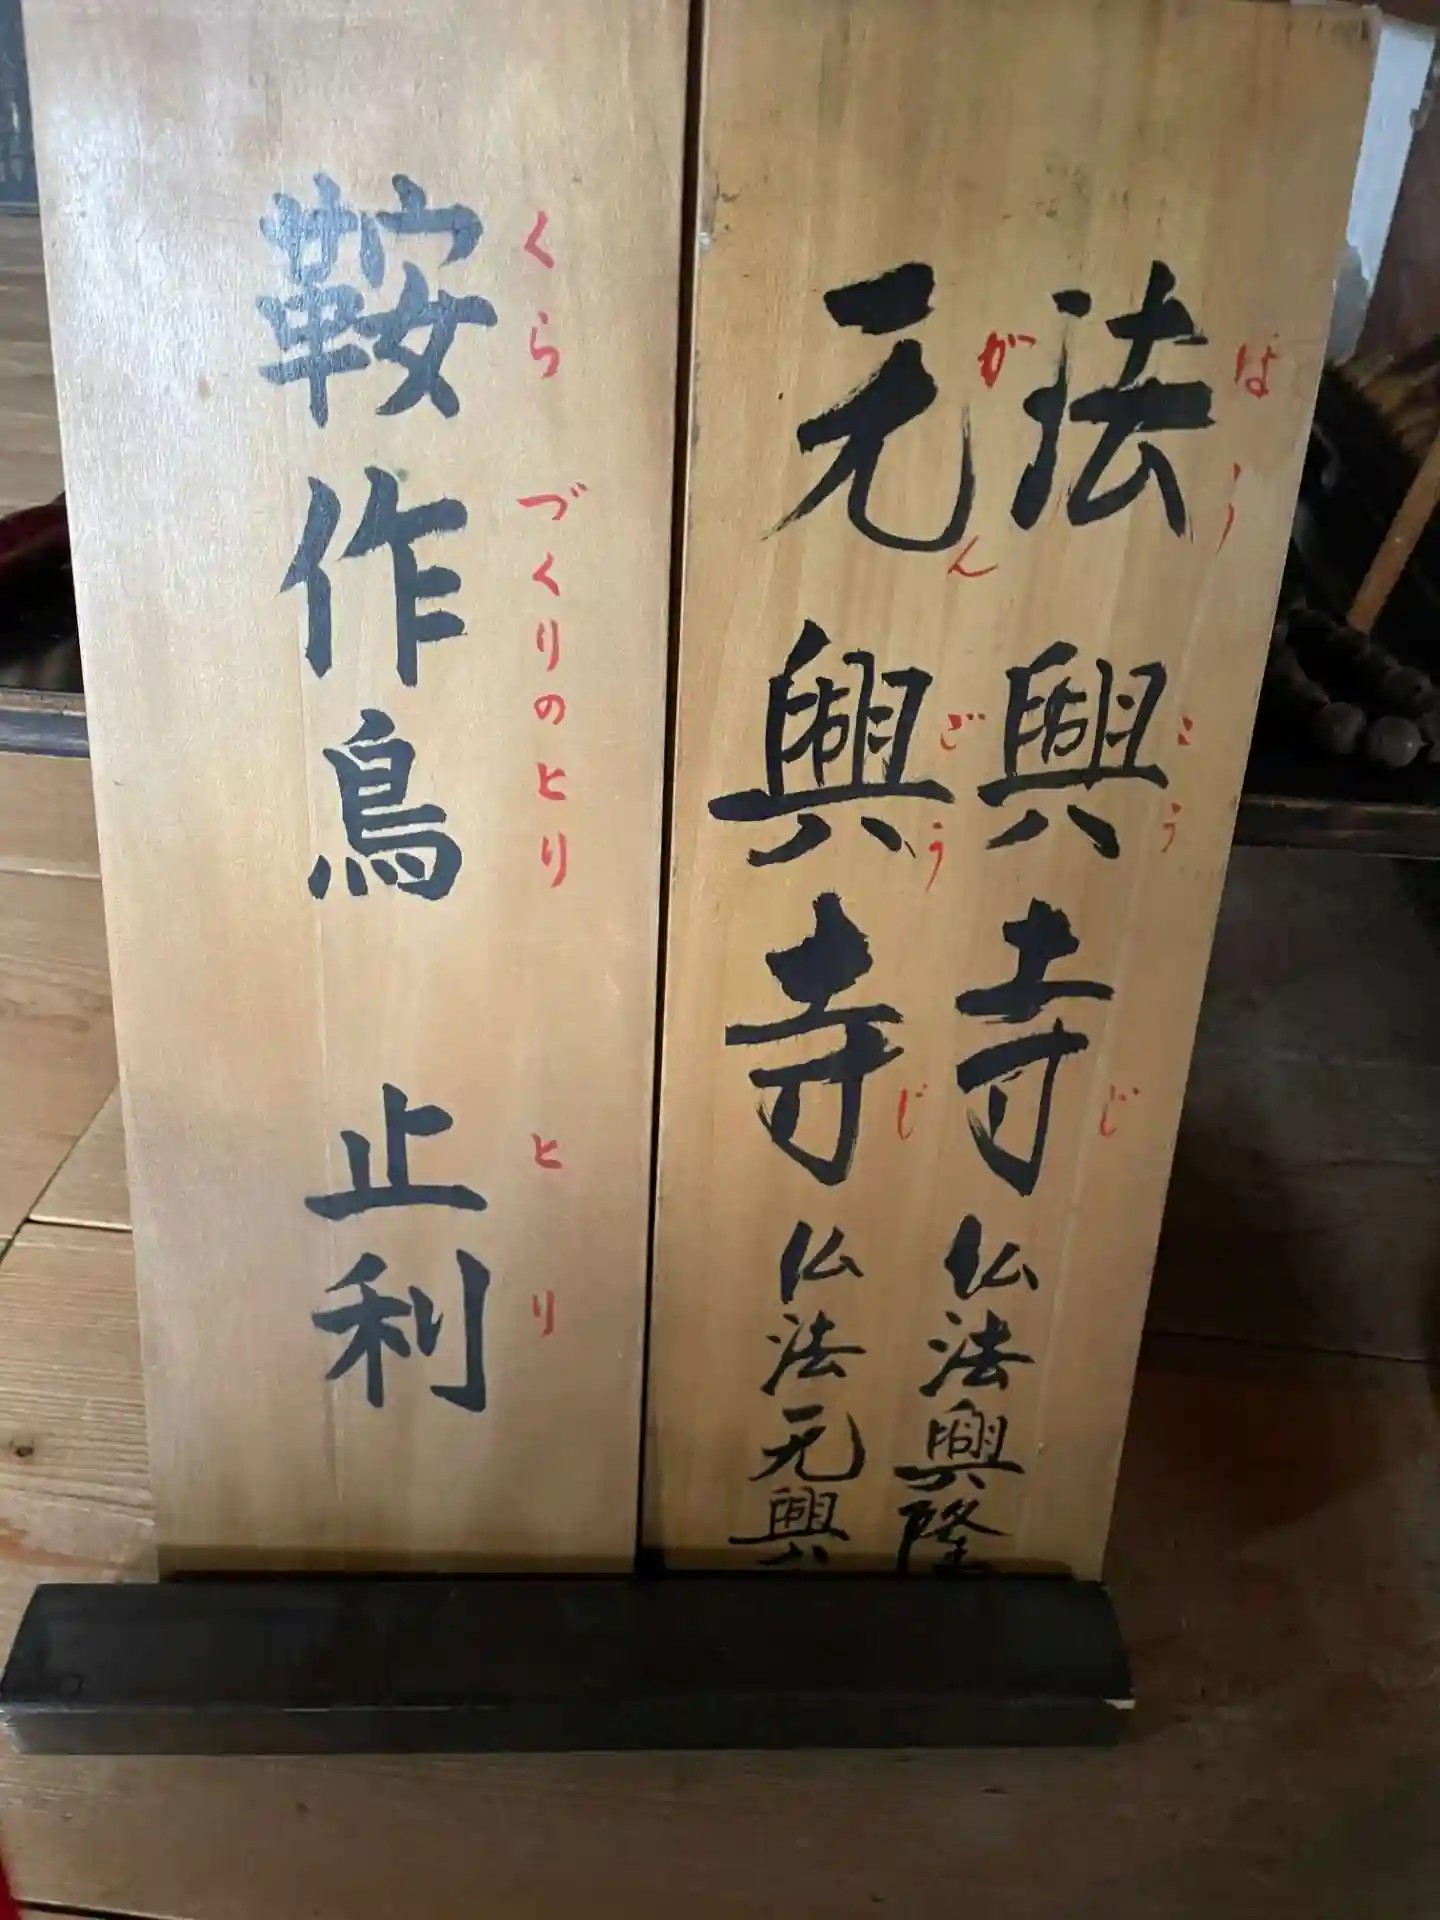 法興寺 仏法興隆
ほうこうじ
元興寺 仏法元興
がんごうじ
鞍作鳥 止利
くらづくりのとり とり